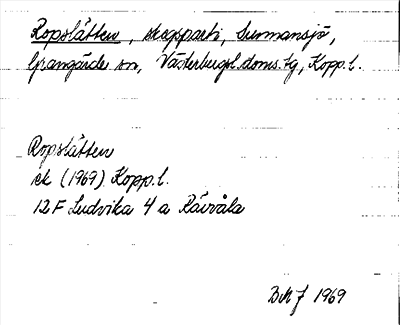 Ropslåtten, skogsparti, Sunnansjö,
Grangärde sn, Västerbergsl. doms. tg, Kopp. l.
Ropslåtten
ek (1969) Kopp. l.
12F Ludvika 4 a Rävvåla
1969